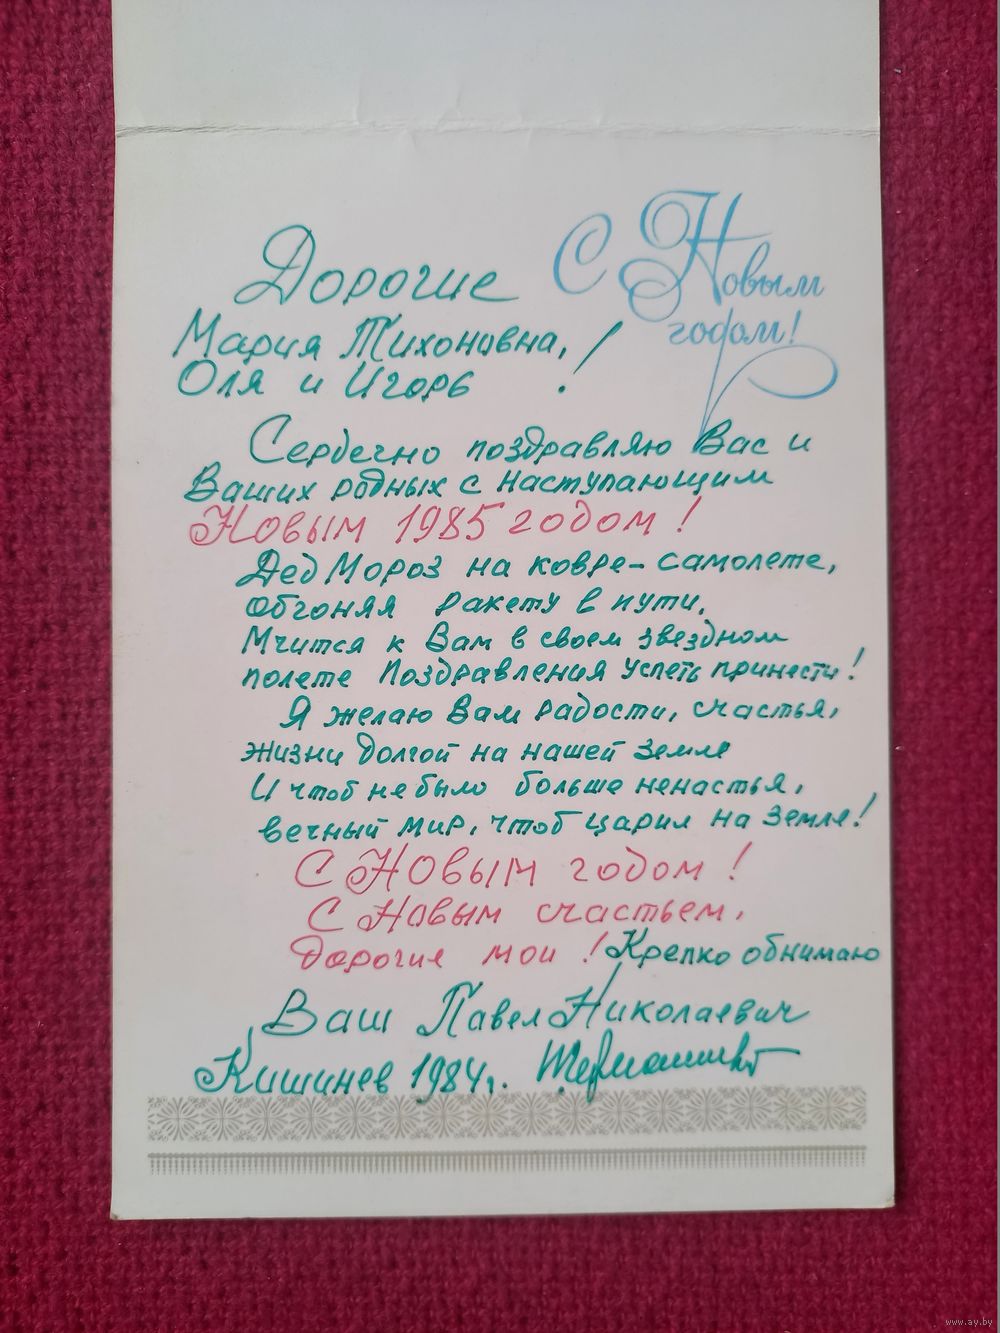 С Новым
годом!
Дорогие
Мария Тихоновна,
Оля и Игорь !
Сердечно поздравляю Вас и
Ваших родных с наступающим
Новым 1985 годом!
Дед Мороз на ковре-самолете,
обгоняя ракету в пути,
Мчится к Вам в своем звездном
полете Поздравления успеть принести!
Я желаю Вам радости, счастья,
жизни долгой на нашей земле
И чтоб не было больше ненастья,
вечный мир, чтоб царил на Земле!
С Новым годом!
С Новым счастьем,
дорогие мои! Крепко обнимаю
Ваш Павел Николаевич
Кишинев 1984г.
www.ay.by